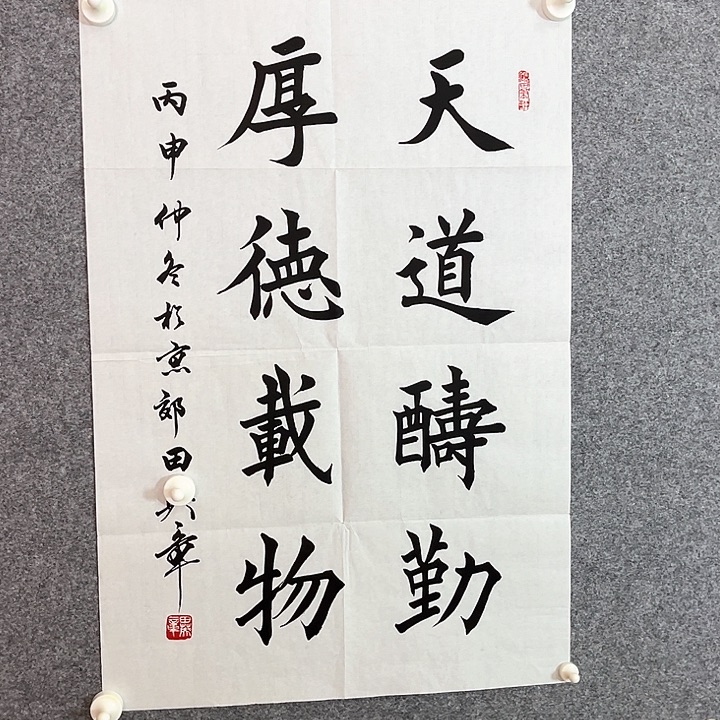 天道醻勤
厚德載物
丙申仲冬於京郊田
章